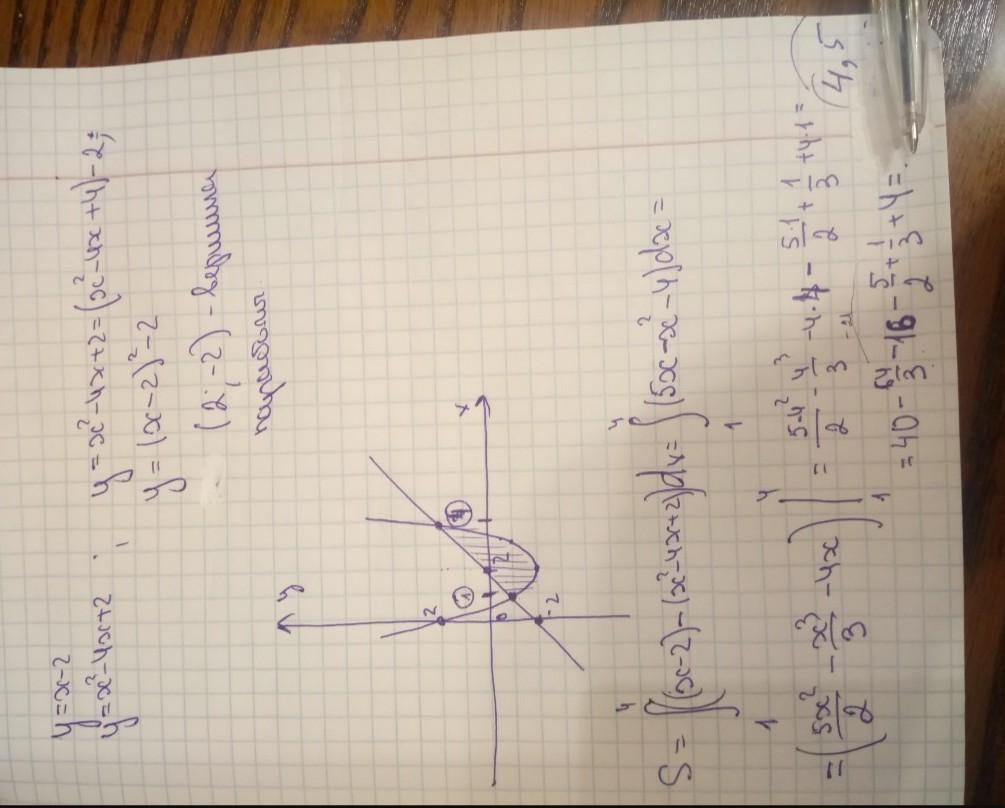 y = x-2
y = x²-4x+2 ; y = x²-4x+2 = (x²-4x+4)-2;
y = (x-2)²-2
(2; -2) - вершина
параболы
y
x
2
1
4
2
0
-2
S = ∫₁⁴((x-2)-(x²-4x+2))dx = ∫₁⁴(5x-x²-4)dx =
= (5x²/2 - x³/3 - 4x)|₁⁴ = 5·4²/2 - 4³/3 - 4·4 - 5·1/2 + 1/3 + 4·1 =
= 40 - 64/3 - 16 - 5/2 + 1/3 + 4 =
4,5